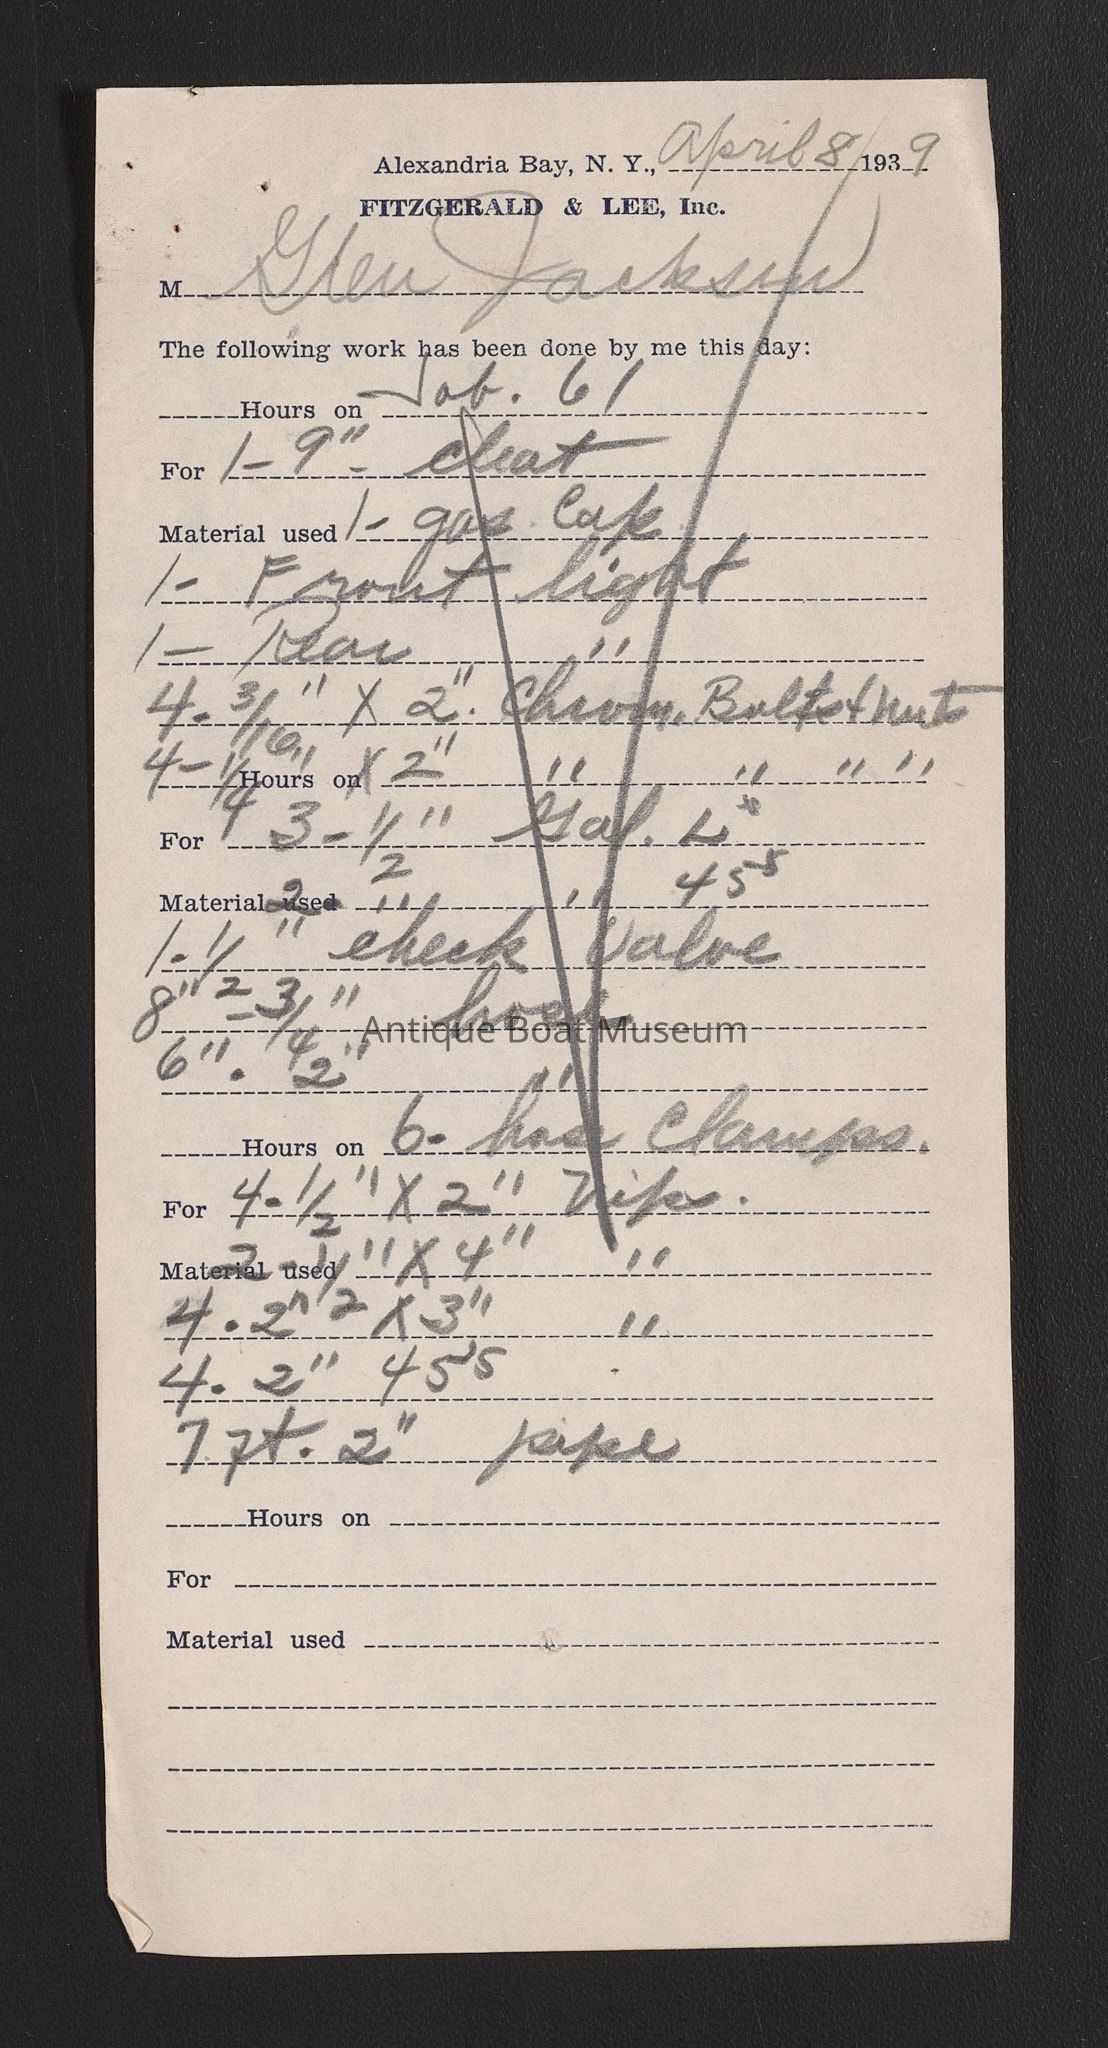 Alexandria Bay, N. Y., April 8 1939
FITZGERALD & LEE, Inc.
M Glen Jackson
The following work has been done by me this day:
Hours on Job. 61
For 1 - 9" - cleat
Material used 1 - gas Cap
1 - Front light
1 - Rear "
4 - 3/16" X 2" Chrom. Bolts & nuts
4 - 1/4" Hours on X 2" " " " "
For 3 - 1/2" Gal. L s
Material used 2 " " 45 s
1 - 1/2" check valve
8" - 3/4" hose
Antique Boat Museum
6" - 2" "
Hours on 6 - hose Clamps.
For 4 - 1/2" X 2" Nips.
Material used 2 - 1/2" X 4" "
4 - 2" X 3" "
4 - 2" 45's
7 ft. 2" pipe
Hours on
For
Material used